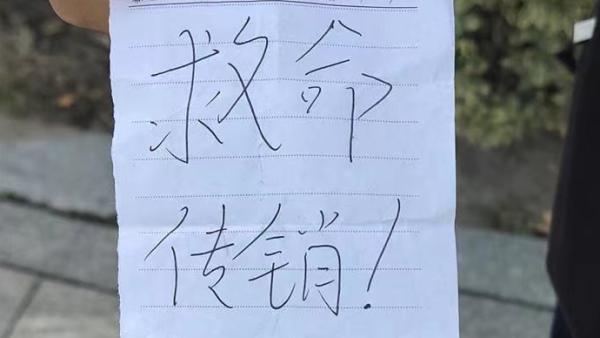 救命
传销!